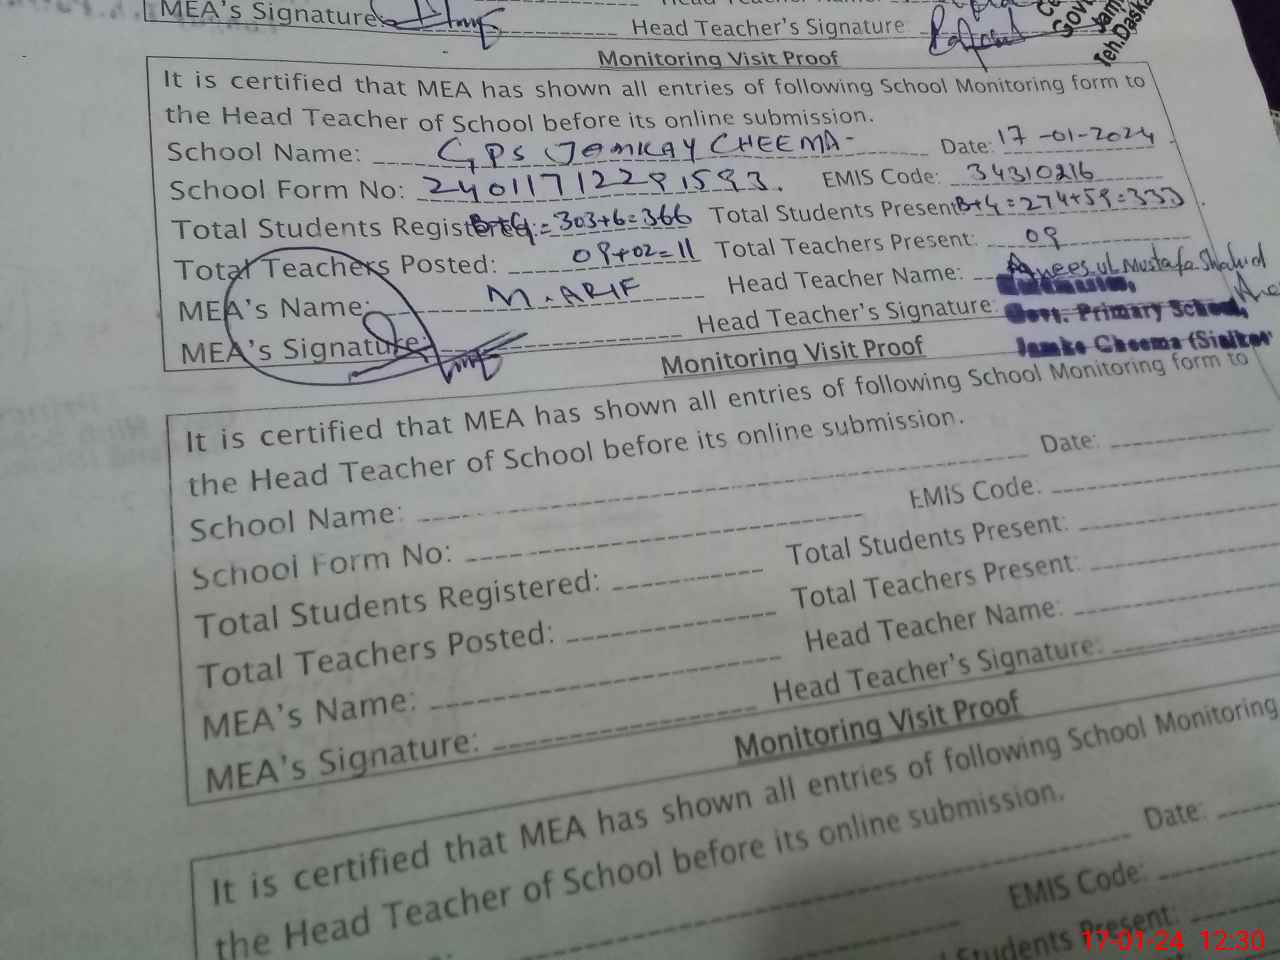 MEA's Signature: Head Teacher's Signature
Monitoring Visit Proof
It is certified that MEA has shown all entries of following School Monitoring form to
the Head Teacher of School before its online submission.
School Name: GPS JAMKAY CHEEMA- Date: 17-01-2024
School Form No: 24011712291593. EMIS Code: 34310216
Total Students Registered: B+G = 303+6=366 Total Students Present B+G = 274+59=333
Total Teachers Posted: 09+02=11 Total Teachers Present: 09
MEA's Name: M. ARIF Head Teacher Name: Anees ul Mustafa Shahid
MEA's Signature: Head Teacher's Signature: Govt. Primary School,
Jamke Cheema (Sialkot
Monitoring Visit Proof
It is certified that MEA has shown all entries of following School Monitoring form to
the Head Teacher of School before its online submission.
School Name: Date:
School Form No: EMIS Code:
Total Students Registered: Total Students Present:
Total Teachers Posted: Total Teachers Present:
MEA's Name: Head Teacher Name:
MEA's Signature: Head Teacher's Signature:
Monitoring Visit Proof
It is certified that MEA has shown all entries of following School Monitoring
the Head Teacher of School before its online submission.
Date:
EMIS Code:
Students Present:
17-01-24 12:30